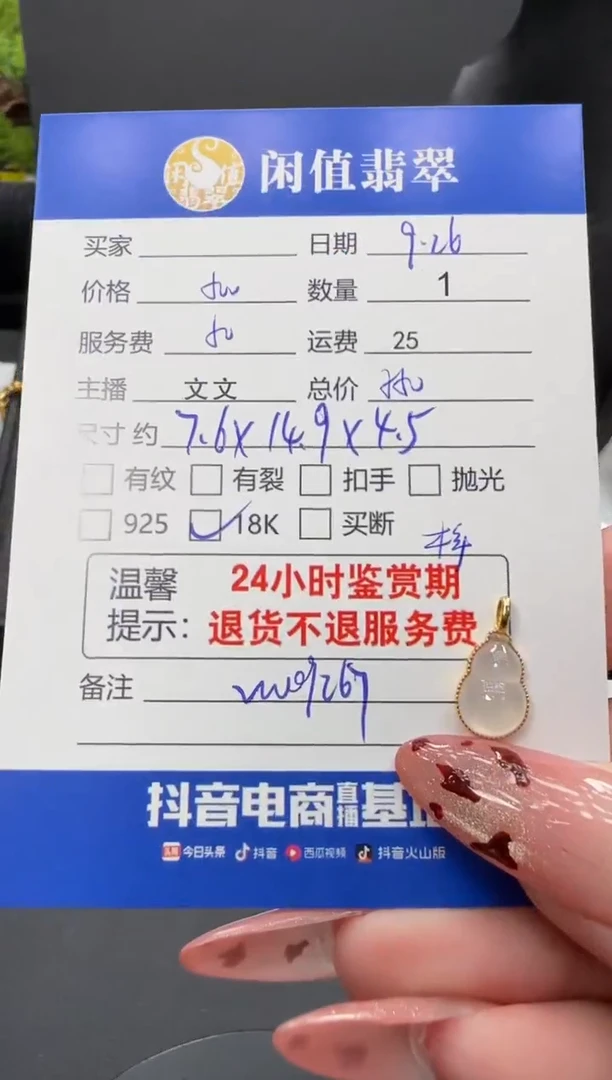 闲值翡翠
买家 日期 9.26
价格 数量 1
服务费 运费 25
主播 文文 总价
尺寸约 7.6X14.9X4.5
有纹 有裂 扣手 抛光
925 18K 买断
温馨提示: 24小时鉴赏期
退货不退服务费
备注
抖音电商直播基
今日头条 抖音 西瓜视频 抖音火山版